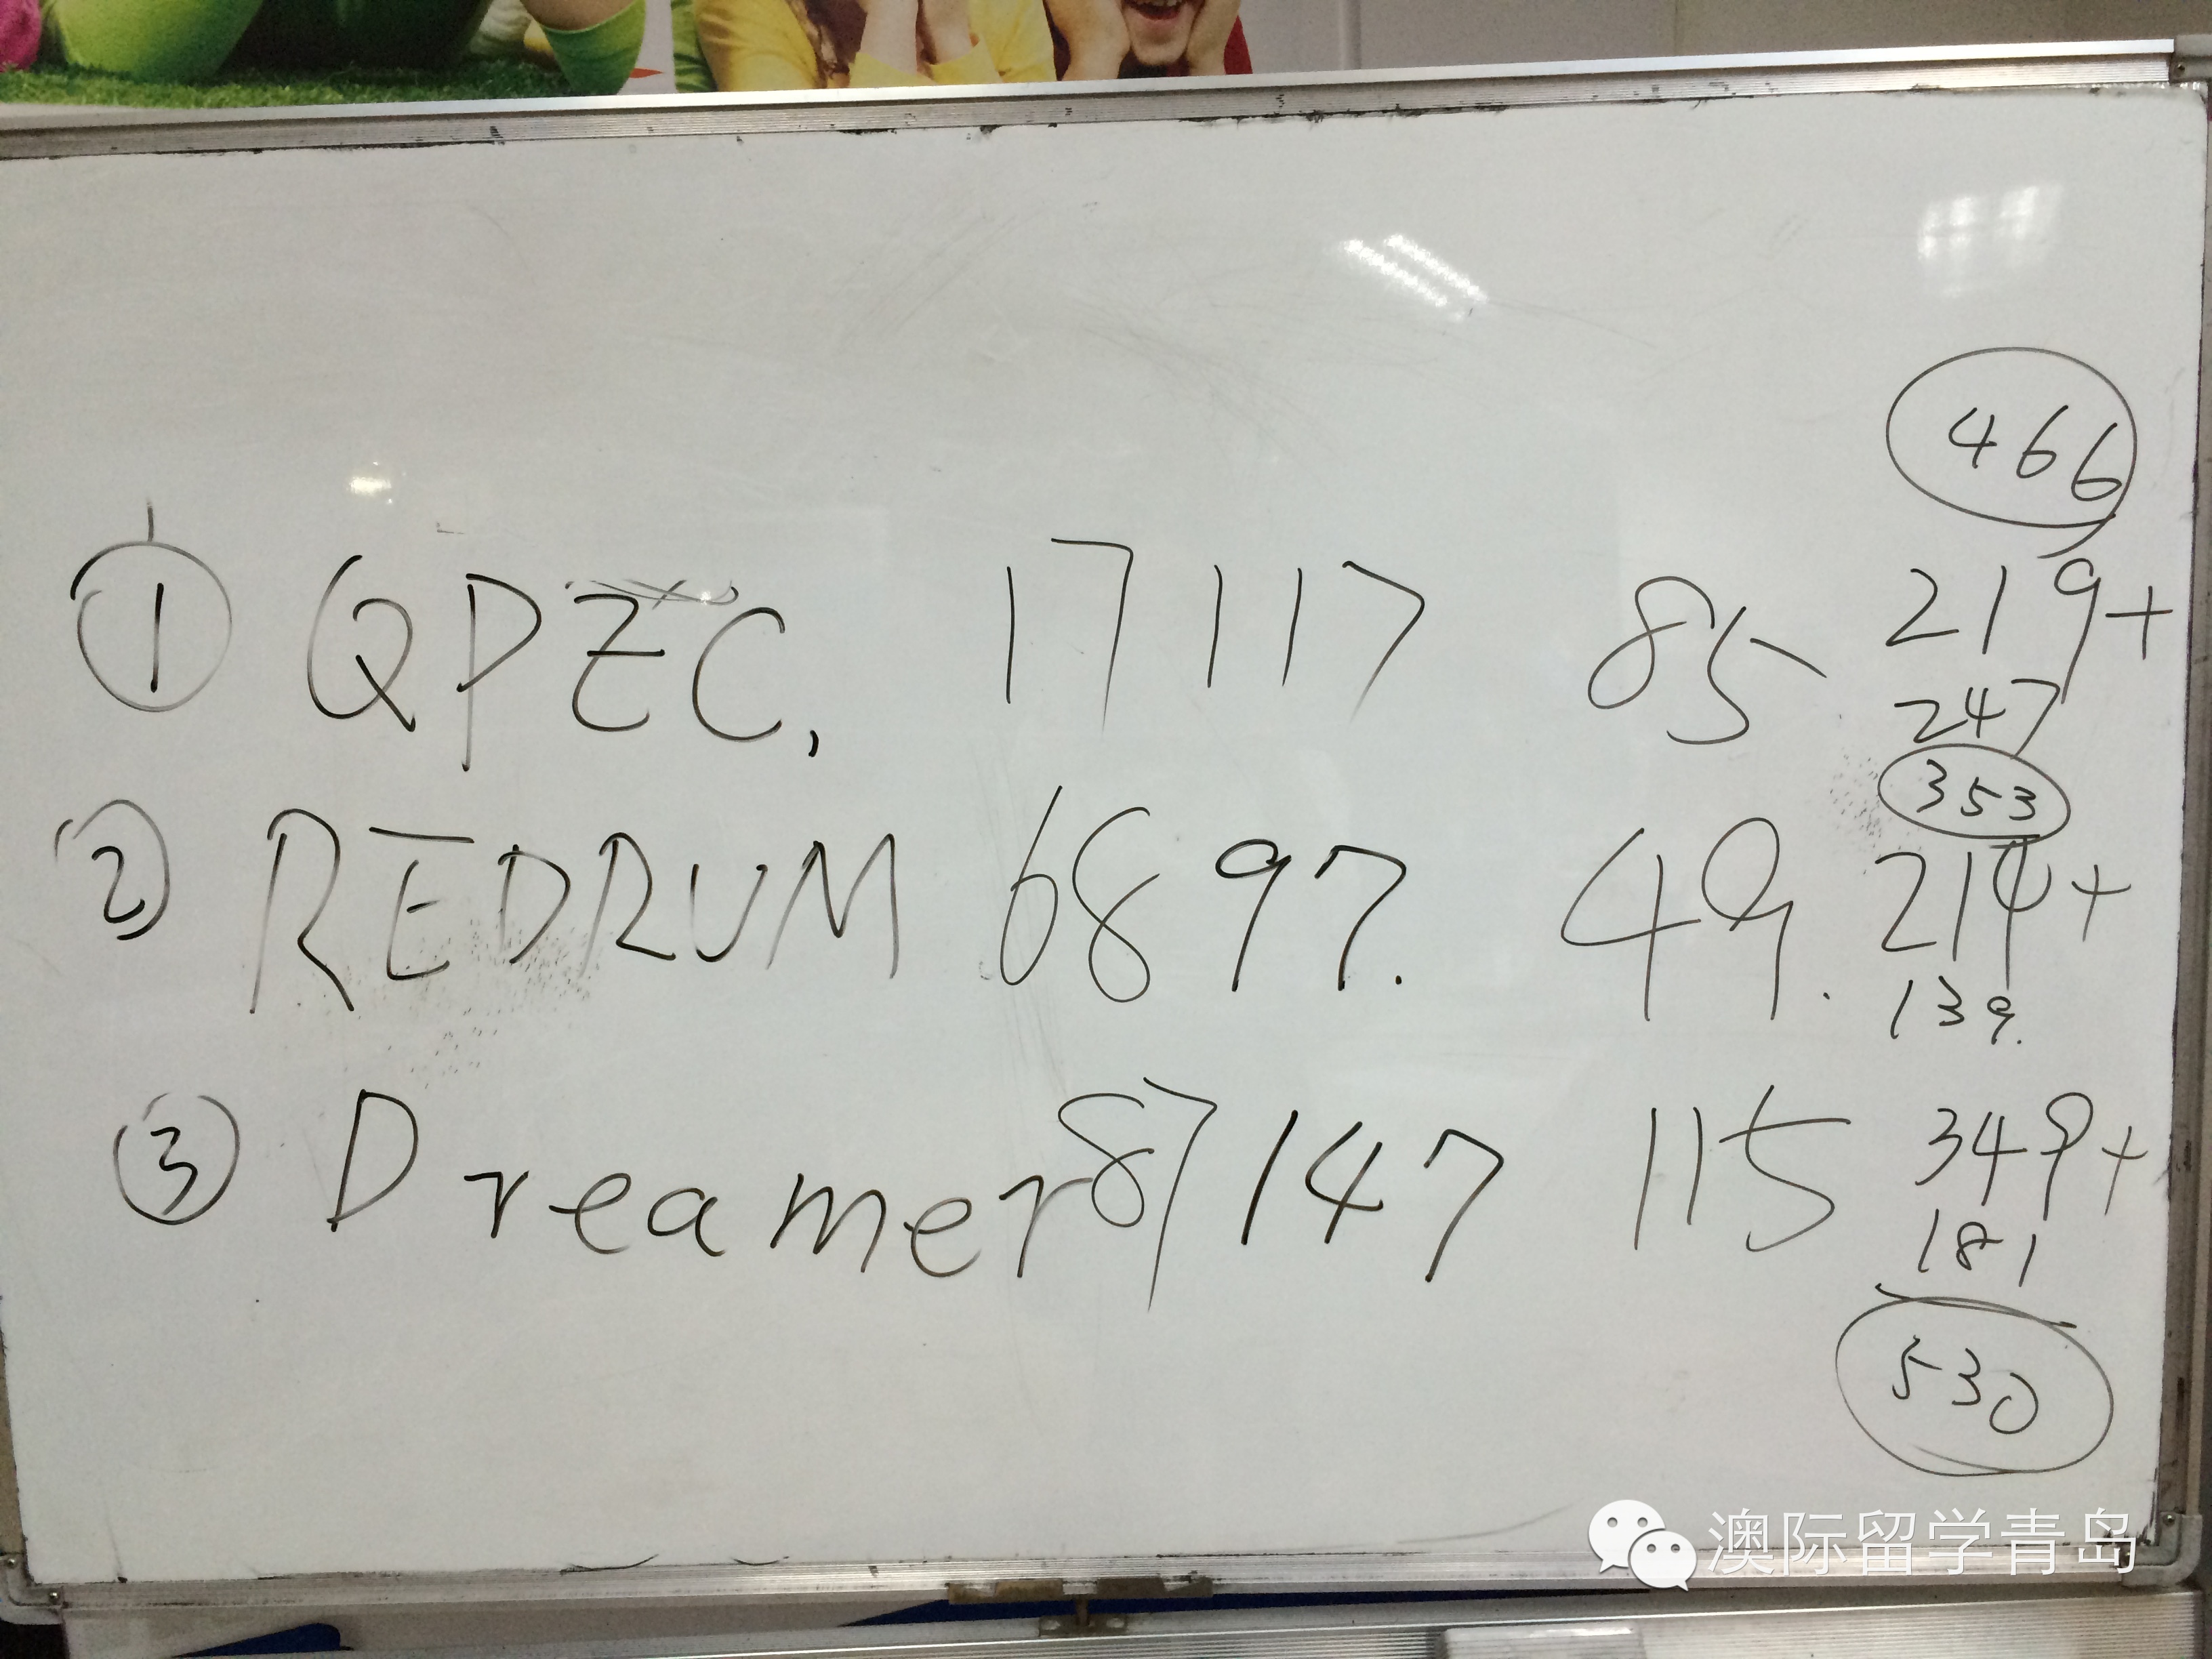 466
① QPEC, 17 117 85 219+
247
353
② REDRUM 68 97. 49. 214+
139.
③ Dreamer 87 147 115 349+
181
530
澳际留学青岛